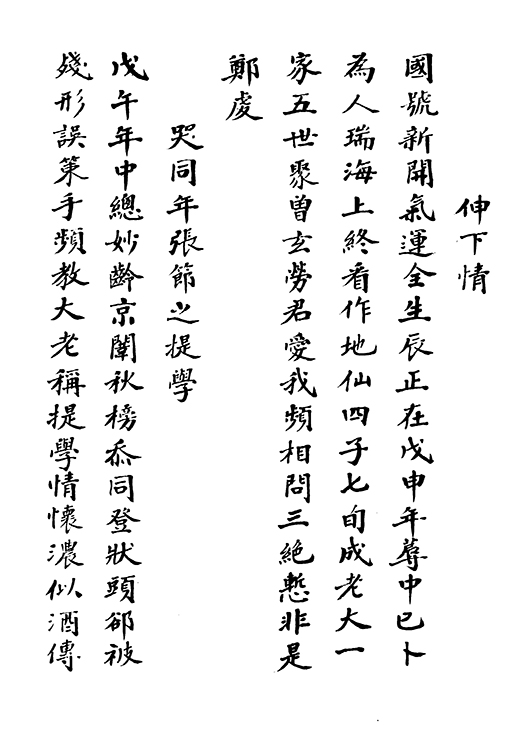 伸下情
國號新開氣運全生辰正在戊申年蓴中已卜
為人瑞海上終看作地仙四子七旬成老大一
家五世聚曾玄勞君愛我頻相問三絶慙非是
鄭虔
哭同年張節之提學
戊午年中總妙齡京闈秋榜忝同登狀頭郤被
殘形誤策手頻教大老稱提學情懷濃似酒傳